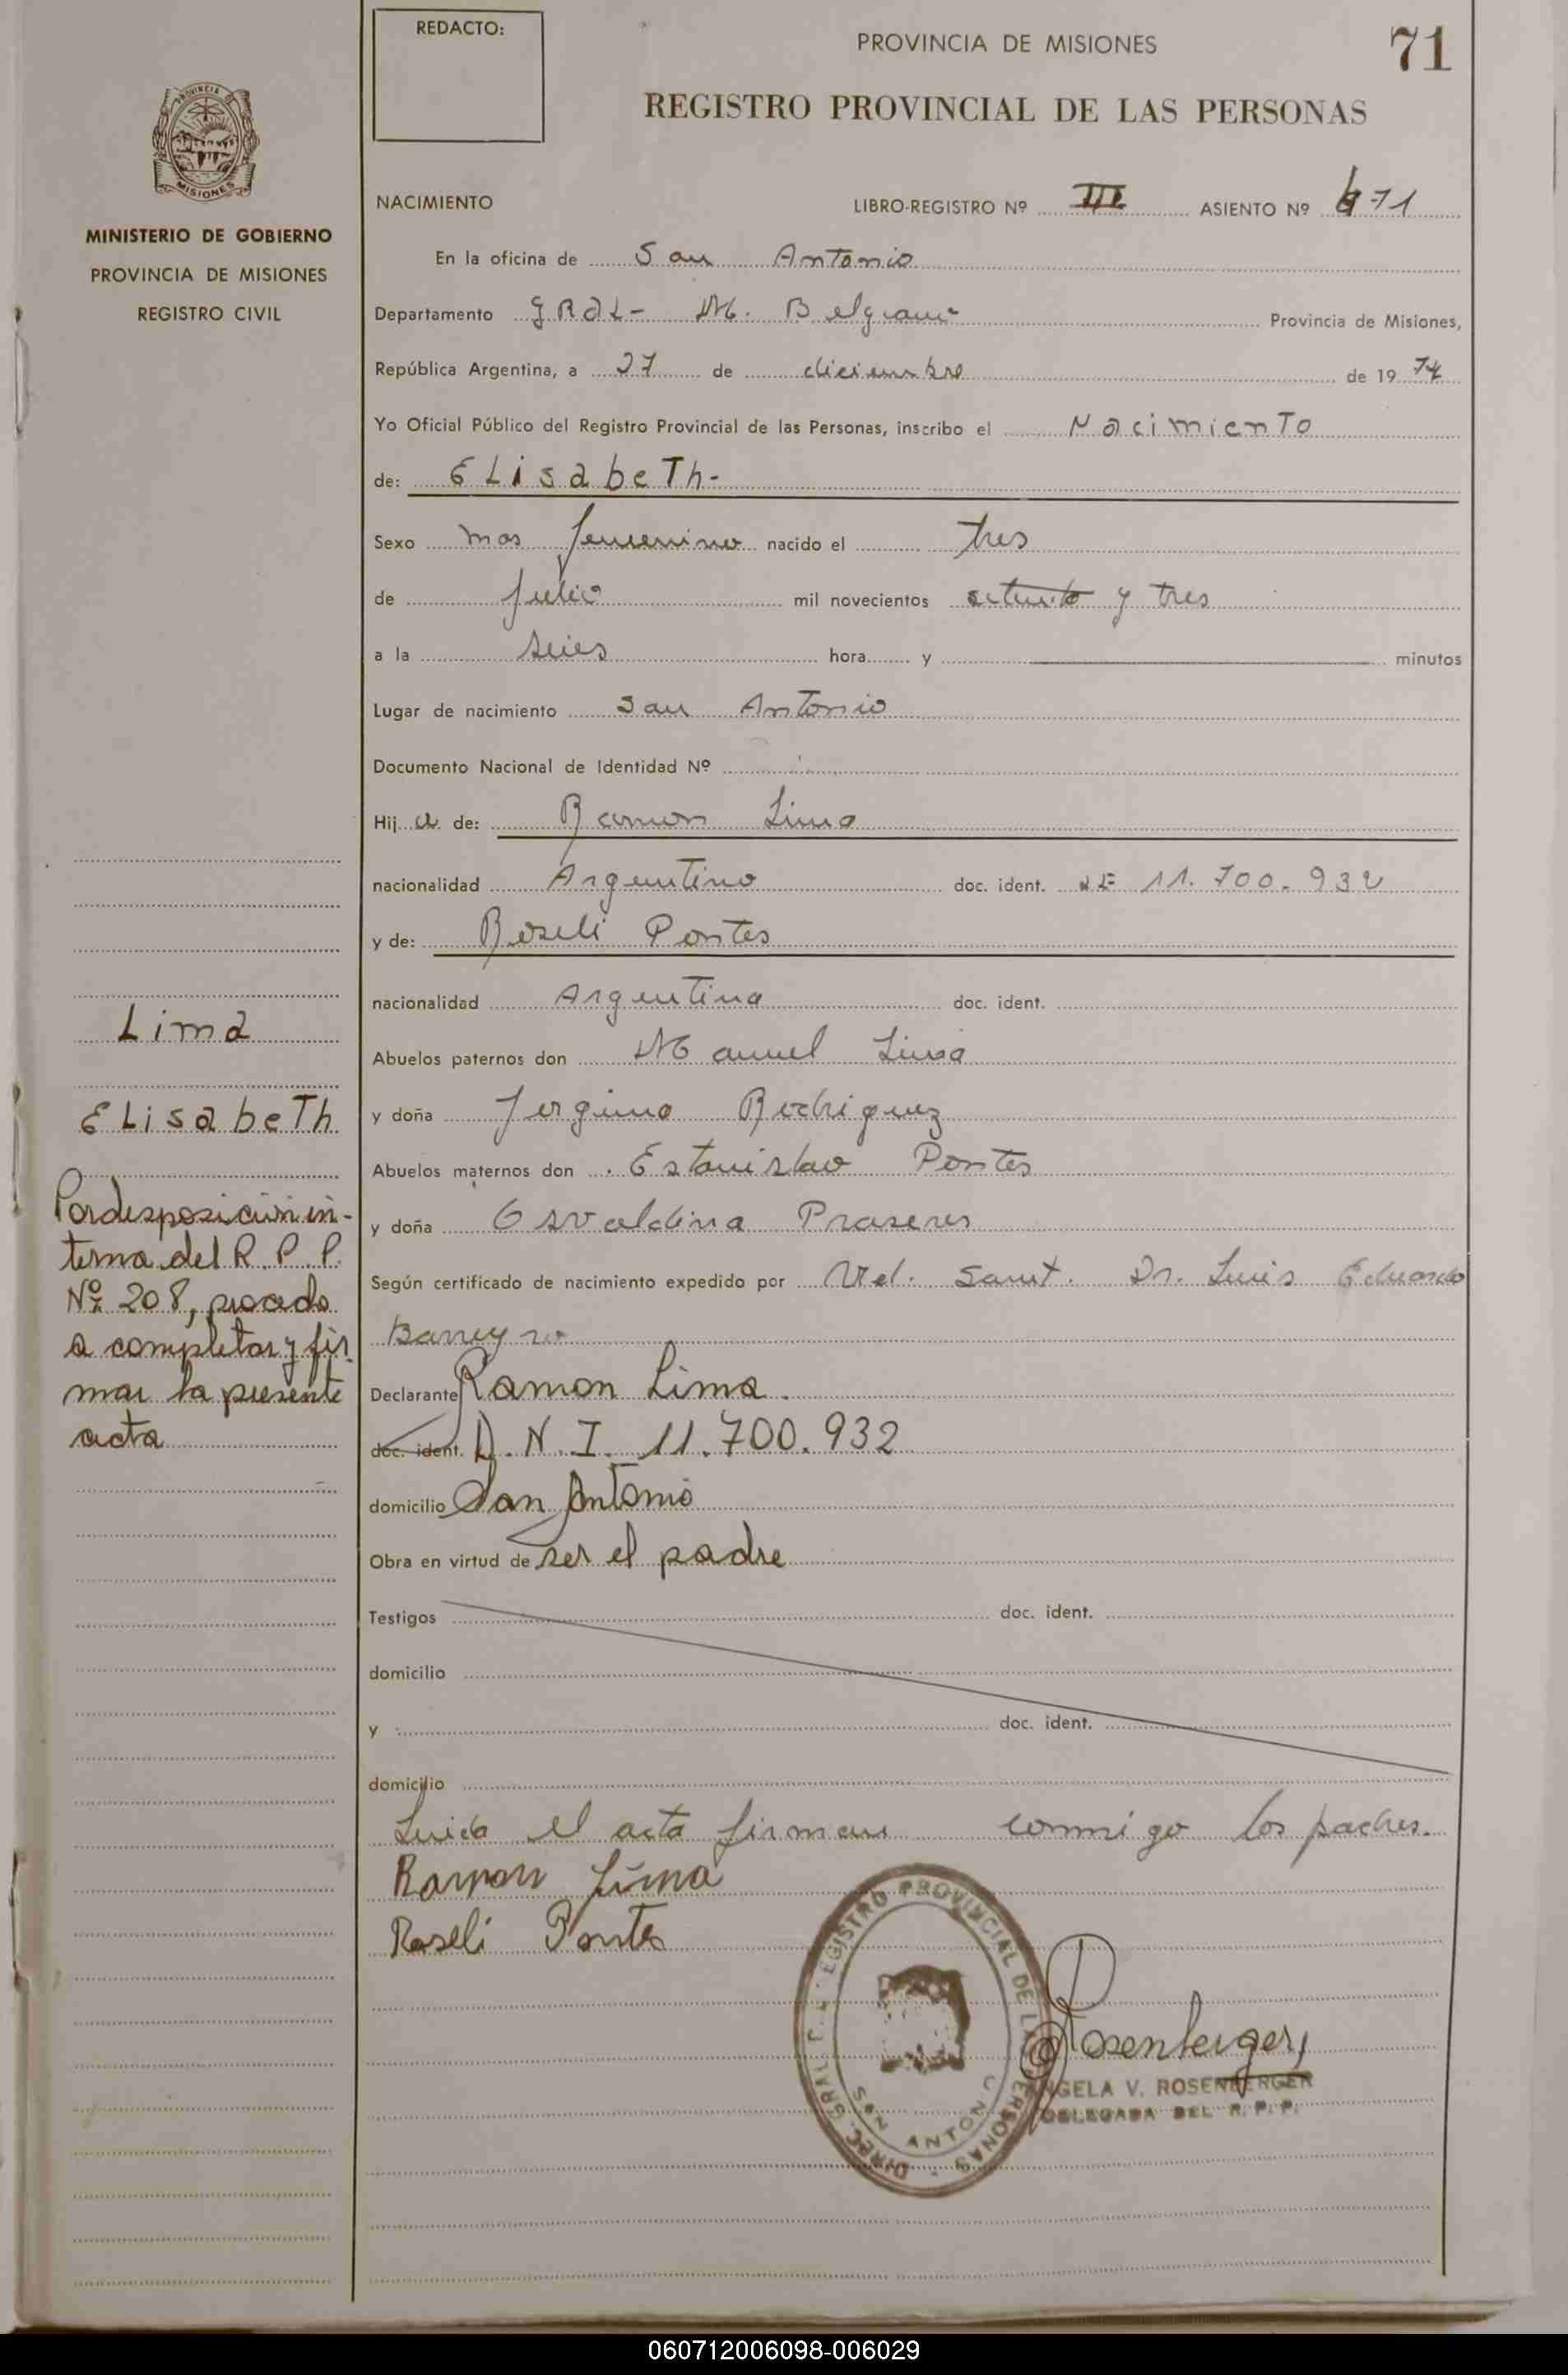 REDACTO:
PROVINCIA DE MISIONES
71
REGISTRO PROVINCIAL DE LAS PERSONAS
PROVINCIA DE
MISIONES
MINISTERIO DE GOBIERNO
PROVINCIA DE MISIONES
REGISTRO CIVIL
NACIMIENTO
LIBRO-REGISTRO Nº III ASIENTO Nº 71
En la oficina de San Antonio
Departamento GRAL- M. Belgrano Provincia de Misiones,
República Argentina, a 27 de diciembre de 19 74
Yo Oficial Público del Registro Provincial de las Personas, inscribo el Nacimiento
de: ELisabeTh-
Sexo mas femenino nacido el tres
de julio mil novecientos setenta y tres
a la seies hora y minutos
Lugar de nacimiento San Antonio
Documento Nacional de Identidad Nº
Hij a de: Ramon Lima
nacionalidad Argentino doc. ident. 11.700.932
y de: Roseli Pontes
nacionalidad Argentina doc. ident.
Abuelos paternos don Manuel Lima
y doña Jergina Rodriguez
Abuelos maternos don Estanislao Pontes
y doña Osvaldina Praseres
Según certificado de nacimiento expedido por Dr. Luis Eduardo
Barreyro
Declarante Ramon Lima.
doc. ident. D.N.I. 11.700.932
domicilio San Antonio
Obra en virtud de ser el padre
Testigos doc. ident.
domicilio
y doc. ident.
domicilio
Leida el acta firman conmigo los padres.
Ramon Lima
Roseli Pontes
Lima
ELisabeTh
Pordesposición in-
terna del R.P.P.
Nº 208, procedo
a completar y fir
mar la presente
acta
DIREC. GRAL. REGISTRO PROVINCIAL DE LAS PERSONAS
SAN ANTONIO
Rosenberger
ANGELA V. ROSENBERGER
DELEGADA DEL R.P.P.
060712006098-006029